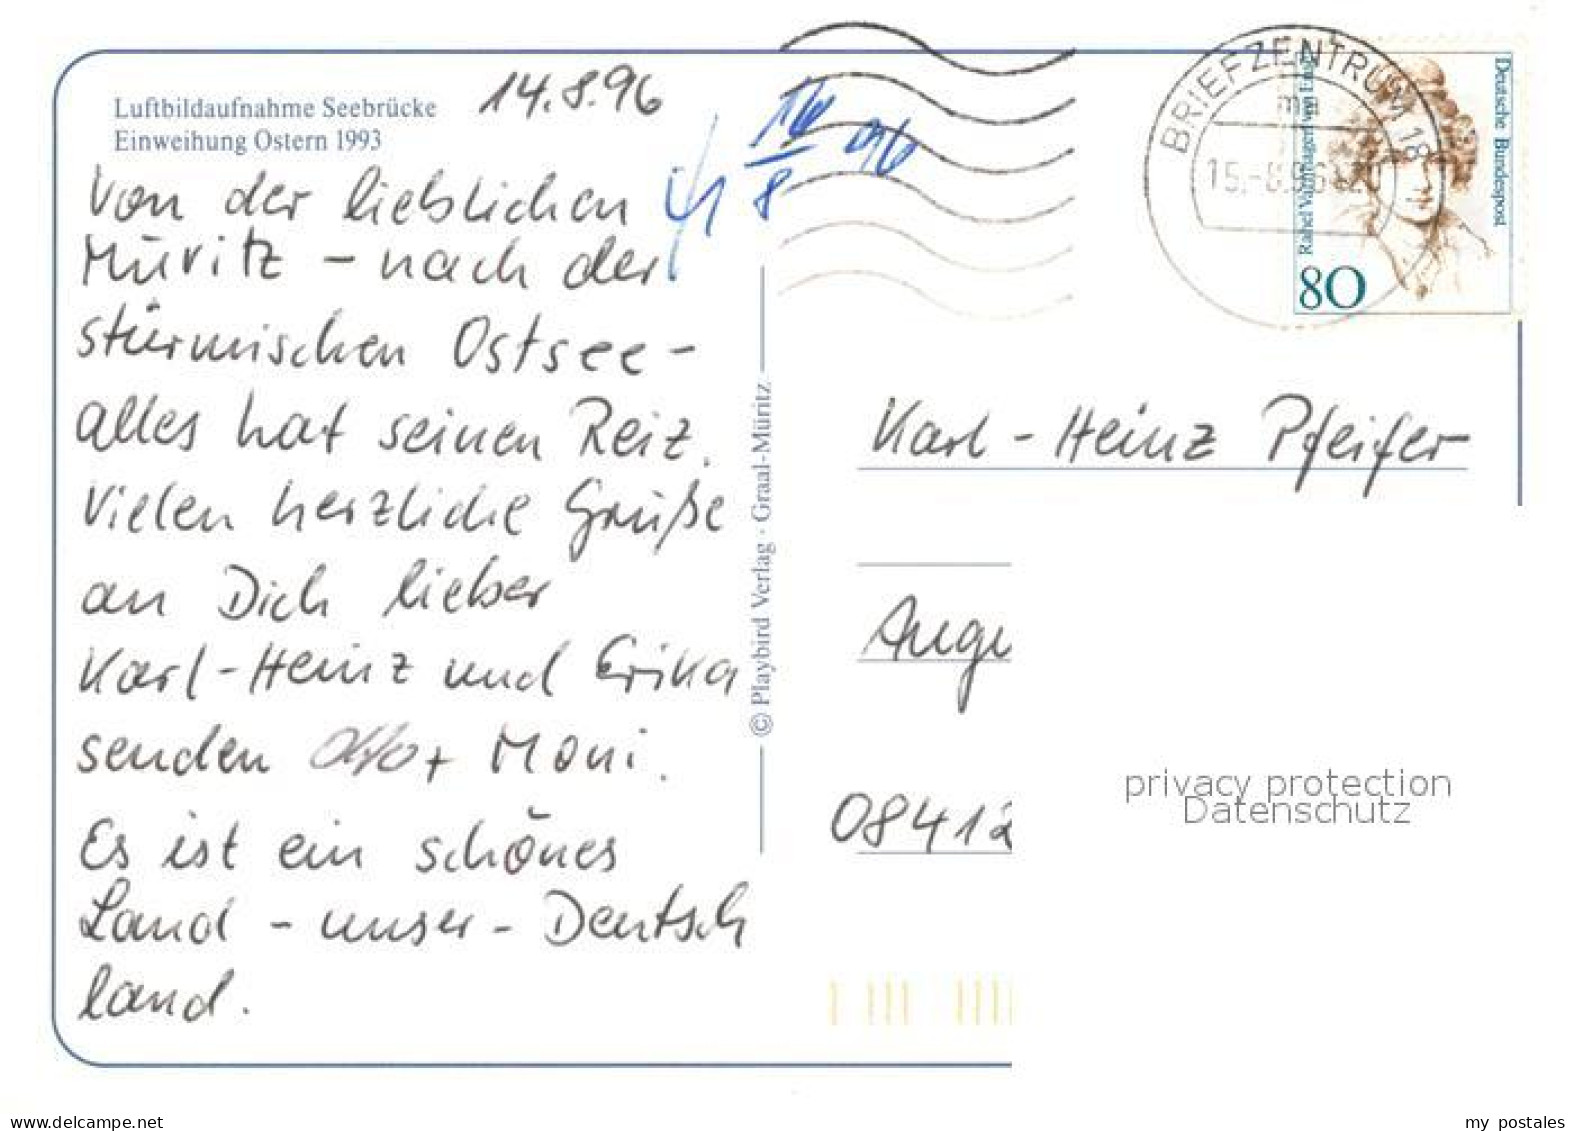 Luftbildaufnahme Seebrücke
Einweihung Ostern 1993
14.8.96
Von der lieblichen
Müritz - nach der
stürmischen Ostsee -
alles hat seinen Reiz.
Vielen herzliche Grüße
an Dich lieber
Karl-Heinz und Erika
senden Otto + Moni.
Es ist ein schönes
Land - unser - Deutsch
land.
96
8
© Playbird Verlag · Graal-Müritz
BRIEFZENTRUM 18
ma
15.-8.96
Deutsche Bundespost
Rahel Varnhagen von Ense
80
Karl-Heinz Pfeifer
Augu
08412
privacy protection
Datenschutz
www.delcampe.net
my postales